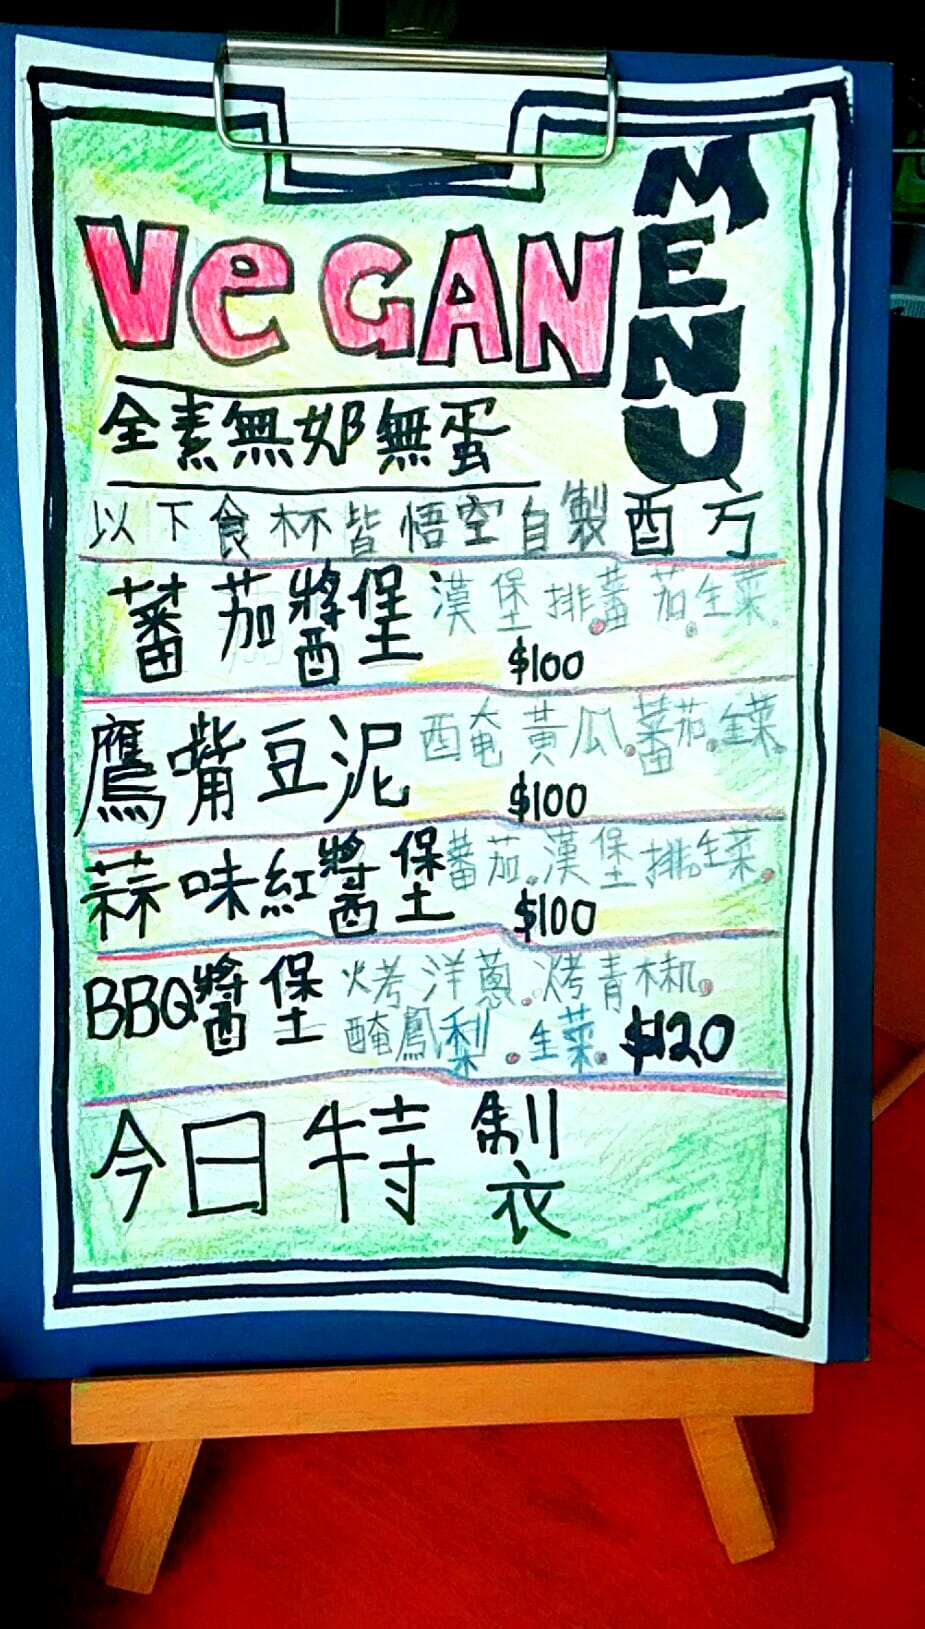 VeGAN
MENU
全素無奶無蛋
以下食材皆悟空自製配方
蕃茄醬堡 漢堡排.蕃茄.生菜.
$100
鷹嘴豆泥 醃黃瓜.蕃茄.生菜.
$100
蒜味紅醬堡 蕃茄.漢堡排.生菜.
$100
BBQ醬堡 烤洋蔥.烤青椒.
醃鳳梨.生菜. $120
今日特製